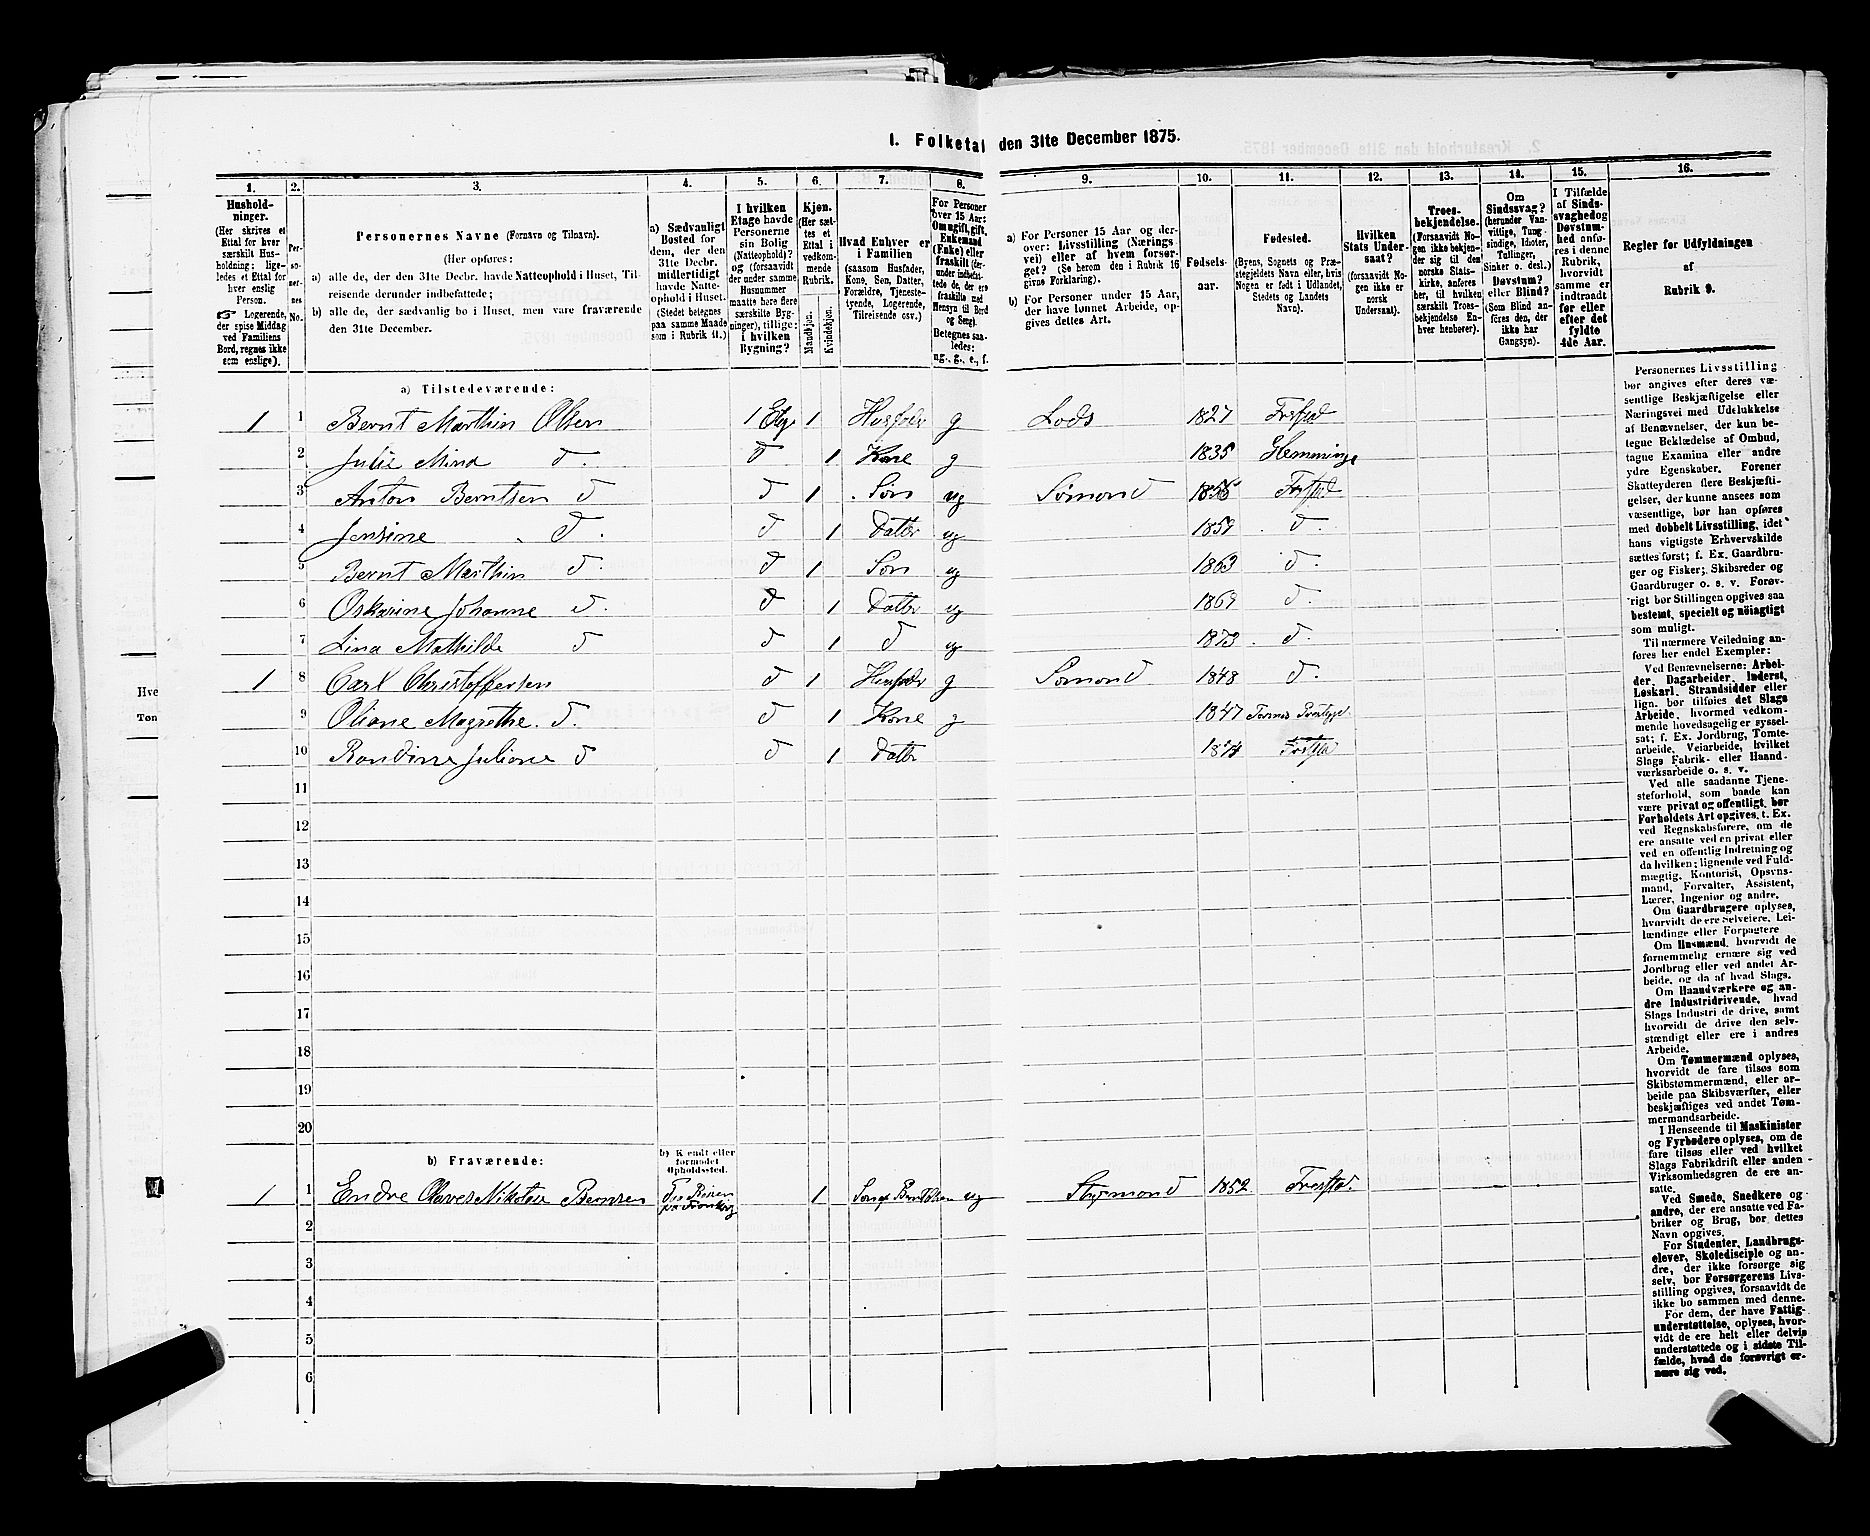 1. Folketal den 31te December 1875.
1. 2. 3. 4. 5. 6. 7. 8. 9. 10. 11. 12. 13. 14. 15. 16.
Hushold-
ninger.
(Her skrives et
Ettal for hver
særskilt Hus-
holdning; lige-
ledes et Ettal for
hver enslig
Person.
☞ Logerende,
der spise Middag
ved Familiens
Bord, regnes ikke
som enslige).
Per-
so-
ner-
nes
No.
Personernes Navne (Fornavn og Tilnavn).
(Her opføres:
a) alle de, der den 31te Decbr. havde Natteophold i Huset, Til-
reisende derunder indbefattede;
b) alle de, der sædvanlig bo i Huset, men vare fraværende
den 31te December.
a) Sædvanligt
Bosted for
dem, der den
31te Decbr.
midlertidigt
havde Natte-
ophold i Huset.
(Stedet betegnes
paa samme Maade
som i Rubrik 11.)
I hvilken
Etage havde
Personerne
sin Bolig
(Natteophold)?
og (forsaavidt
der under samme
Husnummer
maatte høre flere
særskilte Byg-
ninger), tillige:
i hvilken
Bygning?
Kjøn.
(Her sæt-
tes et
Ettal i
vedkom-
mende
Rubrik.
Mandkjøn.
Kvindekjøn.
Hvad Enhver er
i Familien
(saasom Husfader,
Kone, Søn, Datter,
Forældre, Tjeneste-
tyende, Logerende,
Tilreisende osv.)
For Personer
over 15 Aar:
Om ugift, gift,
Enkemand
(Enke) eller
fraskilt (der-
under indbefat-
tede de, der ere
fraskilte med
Hensyn til Bord
og Seng).
Betegnes saa-
ledes:
ug., g., e., f.
a) For Personer 15 Aar og der-
over: Livsstilling (Nærings-
vei) eller af hvem forsør-
get? (Se herom den i Rubrik 16
givne Forklaring).
b) For Personer under 15 Aar,
der have lønnet Arbeide, op-
gives dettes Art.
Fødsels-
aar.
Fødested.
(Byens, Sognets og Præ-
stegjeldets Navn eller, hvis
Nogen er født i Udlandet,
Stedets og Landets
Navn).
Hvilken
Stats Under-
saat?
(forsaavidt No-
gen ikke er
norsk
Undersaat).
Troes-
bekjendelse.
(Forsaavidt No-
gen ikke bekjen-
der sig til den
norske Stats-
kirke, anføres
her, til hvilken
særskilt Troes-
bekjendelse En-
hver henhører).
Om
Sindssvag?
(herunder Van-
vittige, Tung-
sindige, Idioter,
Tullinger,
Sinker o. desl.)
Døvstum?
eller Blind?
(Som Blind an-
føres den, der
ikke har
Gangsyn).
I Tilfælde
af Sinds-
svaghed og
Døvstum-
hed anfø-
res i denne
Rubrik,
hvorvidt
samme er
indtraadt
før eller
efter det
fyldte
4de Aar.
Regler før Udfyldningen
af
Rubrik 9.
a) Tilstedeværende:
1 1 Bernt Marthin Olsen 1 Etg. 1 Husfader g Lods 1827 Frstad
2 Julie Mina d. d 1 Kone g 1835 Hemminge
3 Anton Berntsen d d 1 Søn ug Sømand 1855 Frstad
4 Jensine d. d 1 Datter ug 1859 d.
5 Bernt Marthin d. d 1 Søn ug 1863 d.
6 Oskarine Johanne d. d 1 Datter ug 1869 d.
7 Lina Mathilde d d 1 d ug 1873 d.
1 8 Carl Christoffersen d 1 Husfadr g Sømand 1848 d.
9 Oliane Magrethe d. d 1 Kone g 1847
10 Randine Juliane d d 1 Datter 1874 Frstad
11
12
13
14
15
16
17
18
19
20
b) Fraværende:
b) Kjendt eller
formodet
Opholdssted.
1 1 Endre Olaves Nikolai Bernsen 1 ug Styrmand 1852 Frestad.
2
3
4
5
6
Personernes Livsstilling
bør angives efter deres væ-
sentlige Beskjæftigelse eller
Næringsvei med Udelukkelse
af Benævnelser, der kun be-
tegne Beklædelse af Ombud,
tagne Examina eller andre
ydre Egenskaber. Forener
Skatteyderen flere Beskjæfti-
gelser, der kunne ansees som
væsentlige, bør han opføres
med dobbelt Livsstilling, idet
hans vigtigste Erhvervskilde
sættes først; f. Ex. Gaardbru-
ger og Fisker; Skibsreder og
Gaardbruger o. s. v. Forøv-
rigt bør Stillingen opgives saa
bestemt, specielt og nöiagtigt
som muligt.
Til nærmere Veiledning an-
føres her endel Exempler:
Ved Benævnelserne: Arbei-
der, Dagarbeider, Inderst,
Løskarl, Strandsidder eller
lign. bør tilføies det Slags
Arbeide, hvormed vedkom-
mende hovedsagelig er syssel-
sat; f. Ex. Jordbrug, Tomte-
arbeide, Veiarbeide, hvilket
Slags Fabrik- eller Haand-
værksarbeide o. s. v.
Ved alle saadanne Tjene-
steforhold, som baade kan
være privat og offentligt, bør
Forholdets Art opgives, t. Ex.
ved Regnskabsførere, om de
ere ansatte ved en privat eller
ved en offentlig Indretning og
da hvilken; lignende ved Fuld-
mægtig, Kontorist, Opsyns-
mand, Forvalter, Assistent,
Lærer, Ingeniør og andre.
Om Gaardbrugere oplyses,
hvorvidt de ere Selveiere, Lei-
lændinge eller Forpagtere
Om Husmænd, hvorvidt de
fornemmelig ernære sig ved
Jordbrug eller ved andet Ar-
beide, og da af hvad Slags.
Om Haandværkere og an-
dre Industridrivende, hvad
Slags Industri de drive, samt
hvorvidt de drive den selv-
stændigt eller ere i andres
Arbeide.
Om Tømmermænd oplyses,
hvorvidt de fare tilsøs som
Skibstømmermænd, eller ar-
beide paa Skibsværfter, eller
beskjæftiges ved andet Tøm-
mermandsarbeide.
I Henseende til Maskinister
og Fyrbødere oplyses, om de
fare tilsøs eller ved hvilket
Slags Fabrikdrift eller anden
Virksomhedsgren de ere an-
satte.
Ved Smede, Snedkere og
andre, der ere ansatte ved Fa-
briker og Brug, bør dettes
Navn opgives.
For Studenter, Landbrugs-
elever, Skoledisciple og an-
dre, der ikke forsørge sig
selv, bør Forsørgerens Livs-
stilling opgives, forsaavidt de
ikke bo sammen med denne.
For dem, der have Fattig-
understøttelse, oplyses, hvor-
vidt de ere helt eller delvis
understøttede og i sidste Til-
fælde, hvad de forøvrigt er-
nære sig ved.
Hve
Tøn